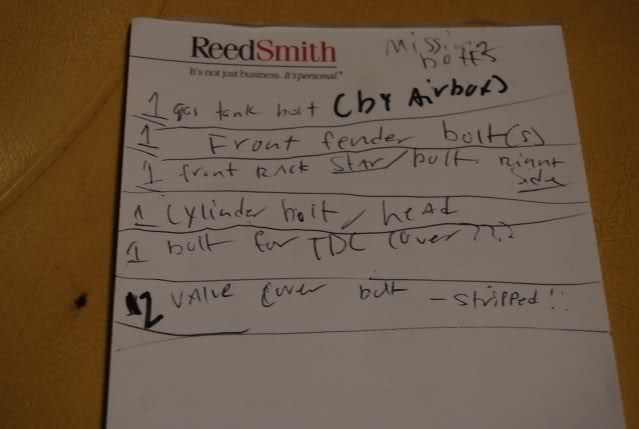 ReedSmith
It's not just business. It's personal.
Missing
bolts
1 gas tank bolt (by Airbox)
1 Front fender bolt(s)
1 front rack star/bolt Right
Side
1 Cylinder bolt/head
1 bolt for TDC Cover???
2 VALVE Cover bolt - Stripped!!